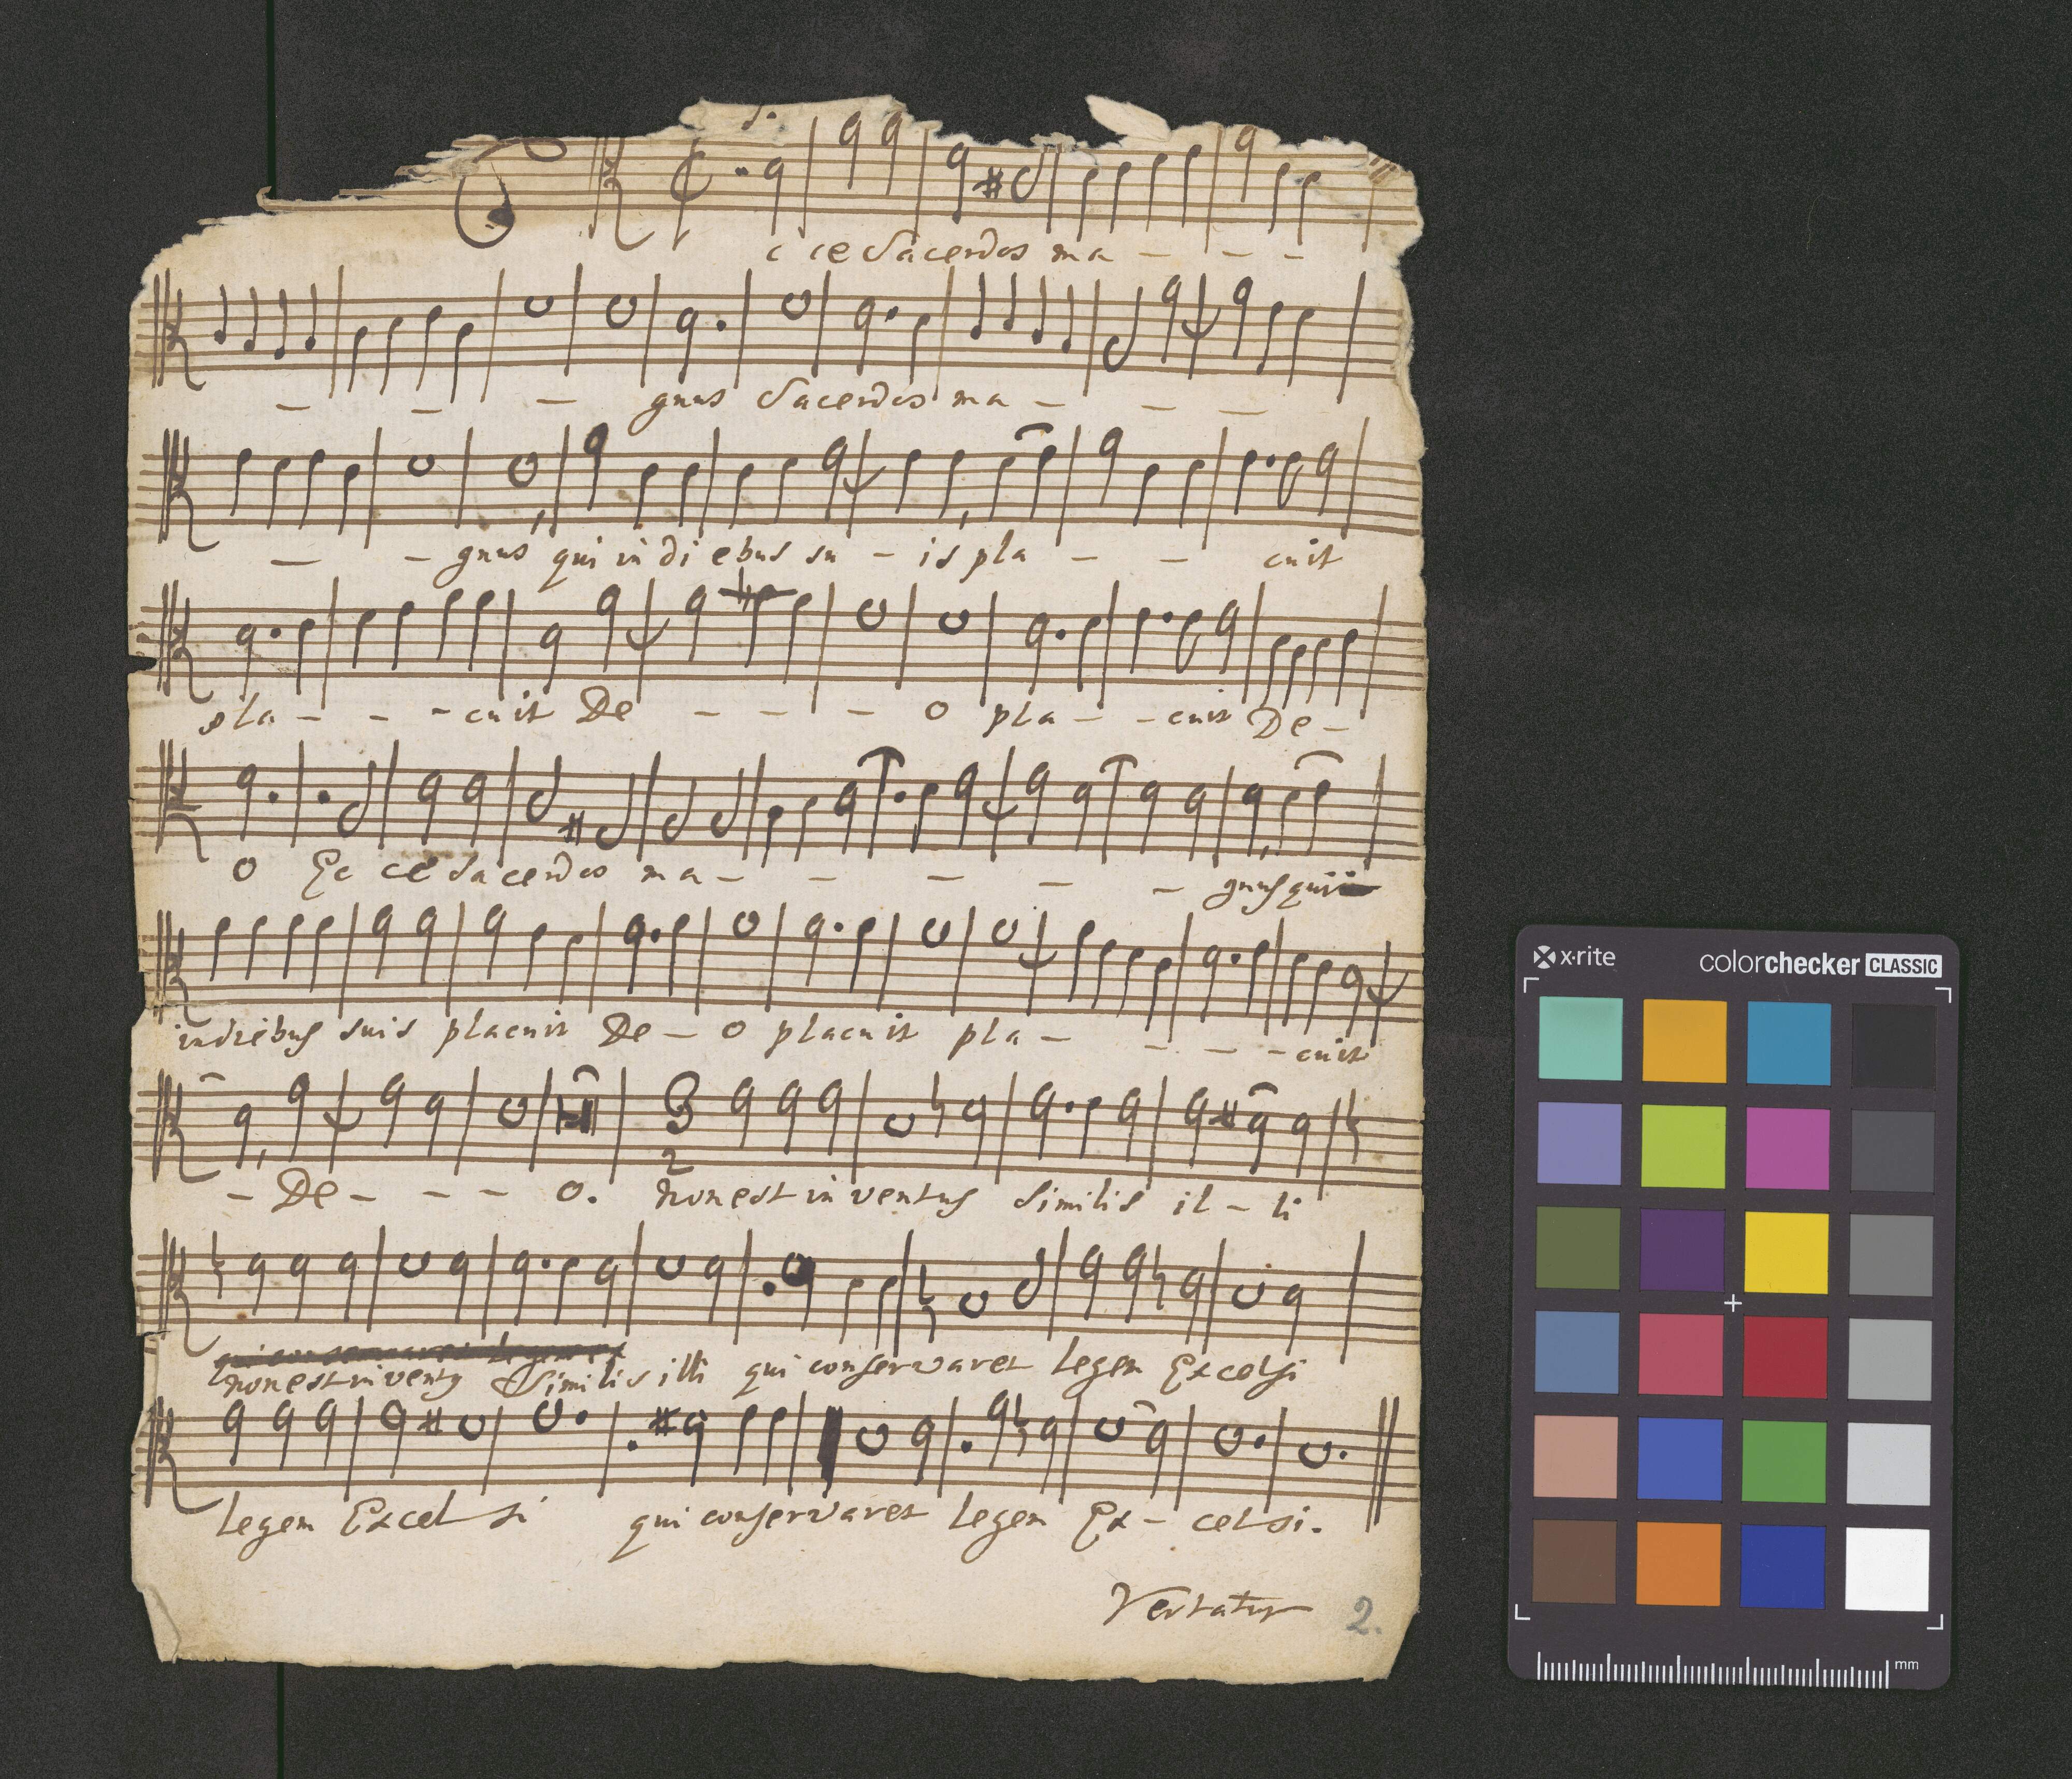 c ce Sacerdos ma - - -
- - - gnus Sacerdos ma - - -
- - gnus qui in di ebus su - is pla - - cuit
pla - - - cuit De - - - o pla - - cuit De -
o Ec ce Sacerdos ma - - - - - gnus qui
in diebus suis placuit De - o placuit pla - - - - cuit
3
2
- De - - - o. non est in ventus Similis il - li
qui conservaret legem ex
non est in ventus Similis illi qui conservaret legem Excelsi
legem Excel si qui conservaret legem Ex - celsi.
Vertatur 2.
x-rite colorchecker CLASSIC
mm